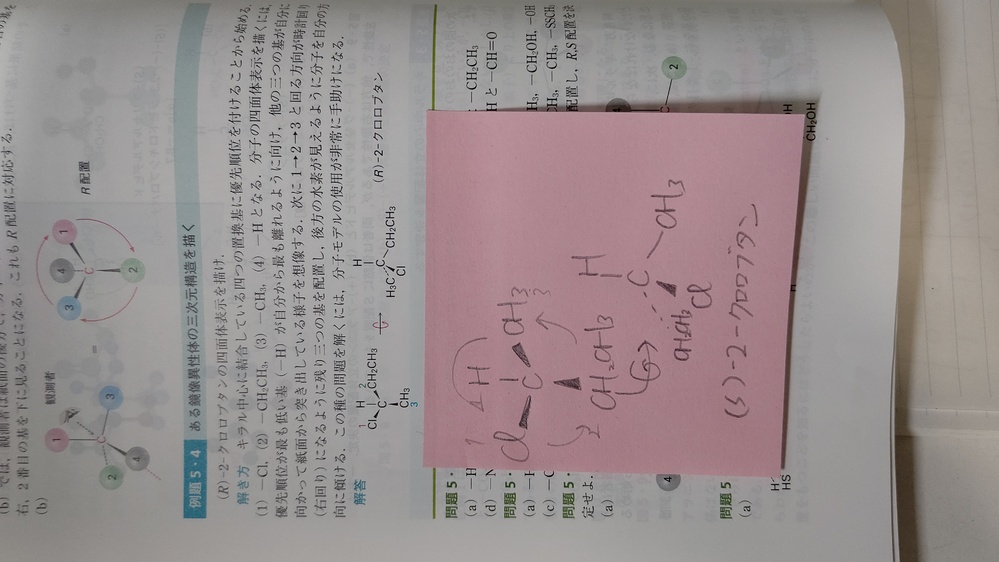 (b)
観測者
1
2
3
4
C
=
1
2
3
4
C
R配置
例題 5・4 ある鏡像異性体の三次元構造を描く
(R)-2-クロロブタンの四面体表示を描け.
解き方 キラル中心に結合している四つの置換基に優先順位を付けることから始める.
(1) −Cl, (2) −CH₂CH₃, (3) −CH₃, (4) −H となる. 分子の四面体表示を描くには,
優先順位が最も低い基 (−H) が自分から最も離れるように向け, 他の三つの基が自分に
向かって紙面から突き出している様子を想像する. 次に 1→2→3 と回る方向が時計回り
(右回り) になるように残り三つの基を配置し, 後方の水素が見えるように分子を自分の方
向に傾ける. この種の問題を解くには, 分子モデルの使用が非常に手助けになる.
解答
1 H 2
Cl C CH₂CH₃
CH₃
3
H
H₃C C CH₂CH₃
Cl
(R)-2-クロロブタン
問題 5・
(a) −H
−CH₂CH₃
(d) −N
H と −CH=O
問題 5・
(a) −H
H₃, −CH₂OH, −OH
(c) −C
CH₃, −CH₃, −SSCH
問題 5・
配置し, R,S 配置を決
定せよ.
(a)
4
C
2
4
問題 5
(a)
H
HS
CH₂OH
1 4 H
Cl C CH₃ 3
2 CH₂CH₃
H
C CH₃
CH₂CH₃ Cl
(S)-2-クロロブタン